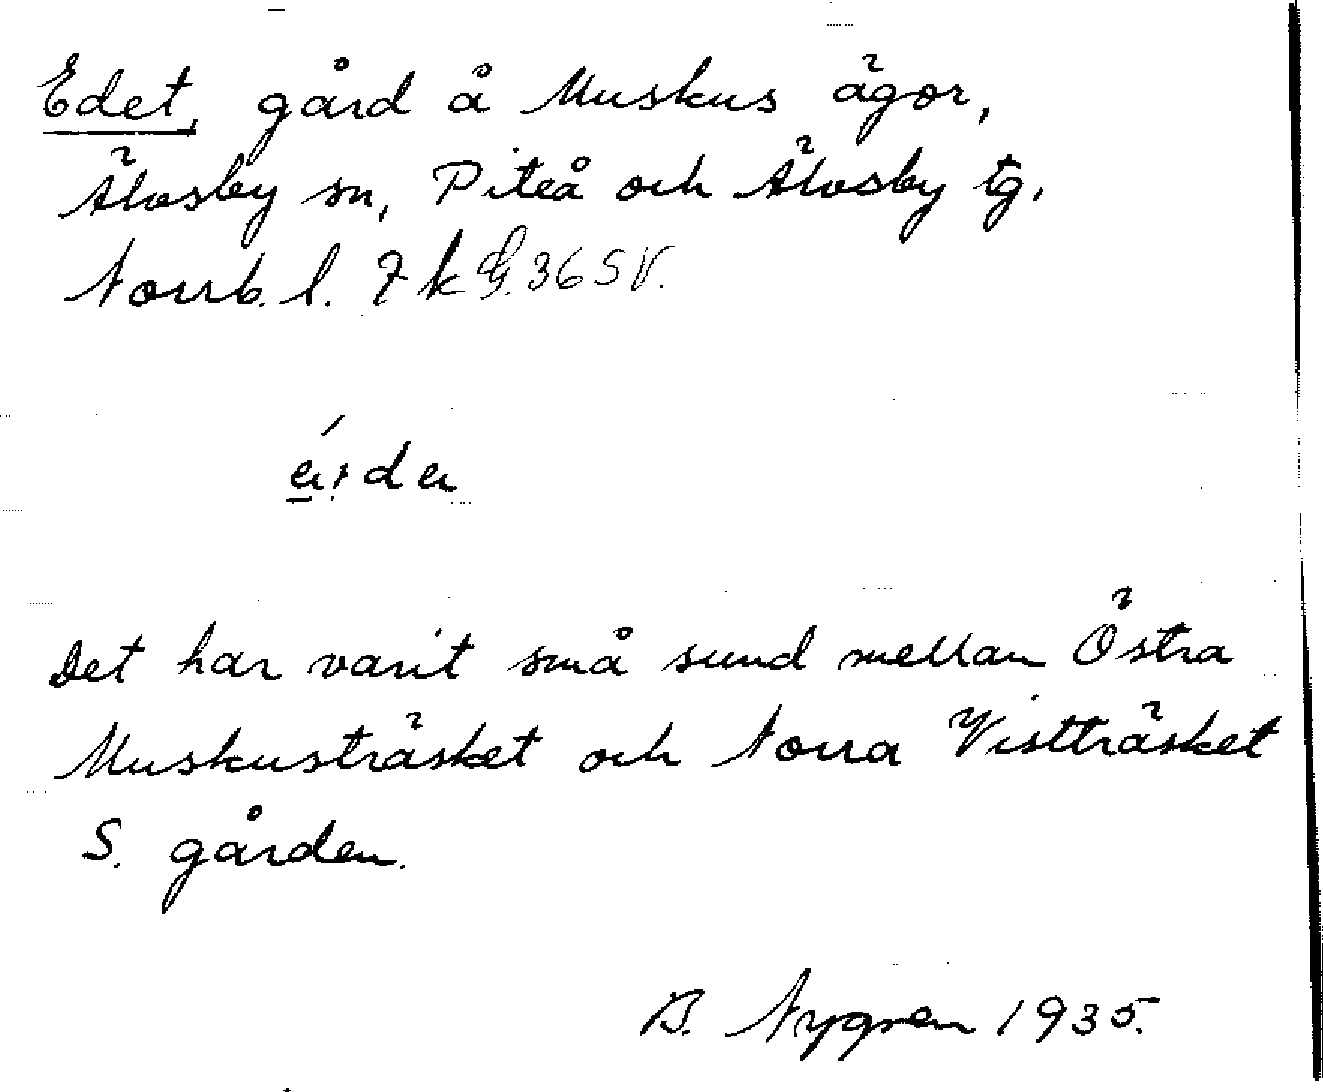 Edet, gård å Muskus ägor,
Älvsby sn, Piteå och Älvsby tg.
Norrb. l. 7 k G. 36 SV.
Det har varit små sund mellan Östra
Muskusträsket och Norra Vistträsket
S. gården.
B. Nygren 1935.